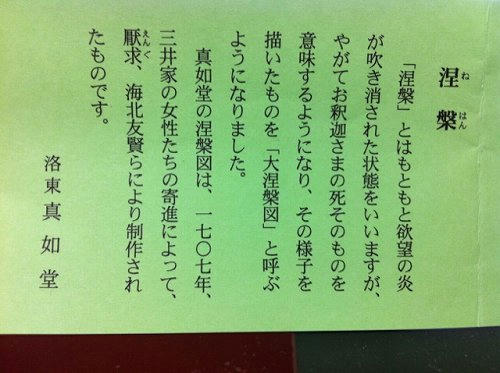 涅槃
ねはん
「涅槃」とはもともと欲望の炎
が吹き消された状態をいいますが、
やがてお釈迦さまの死そのものを
意味するようになり、その様子を
描いたものを「大涅槃図」と呼ぶ
ようになりました。
真如堂の涅槃図は、一七〇七年、
三井家の女性たちの寄進によって、
厭求、海北友賢らにより制作され
えんぐ
たものです。
洛東真如堂